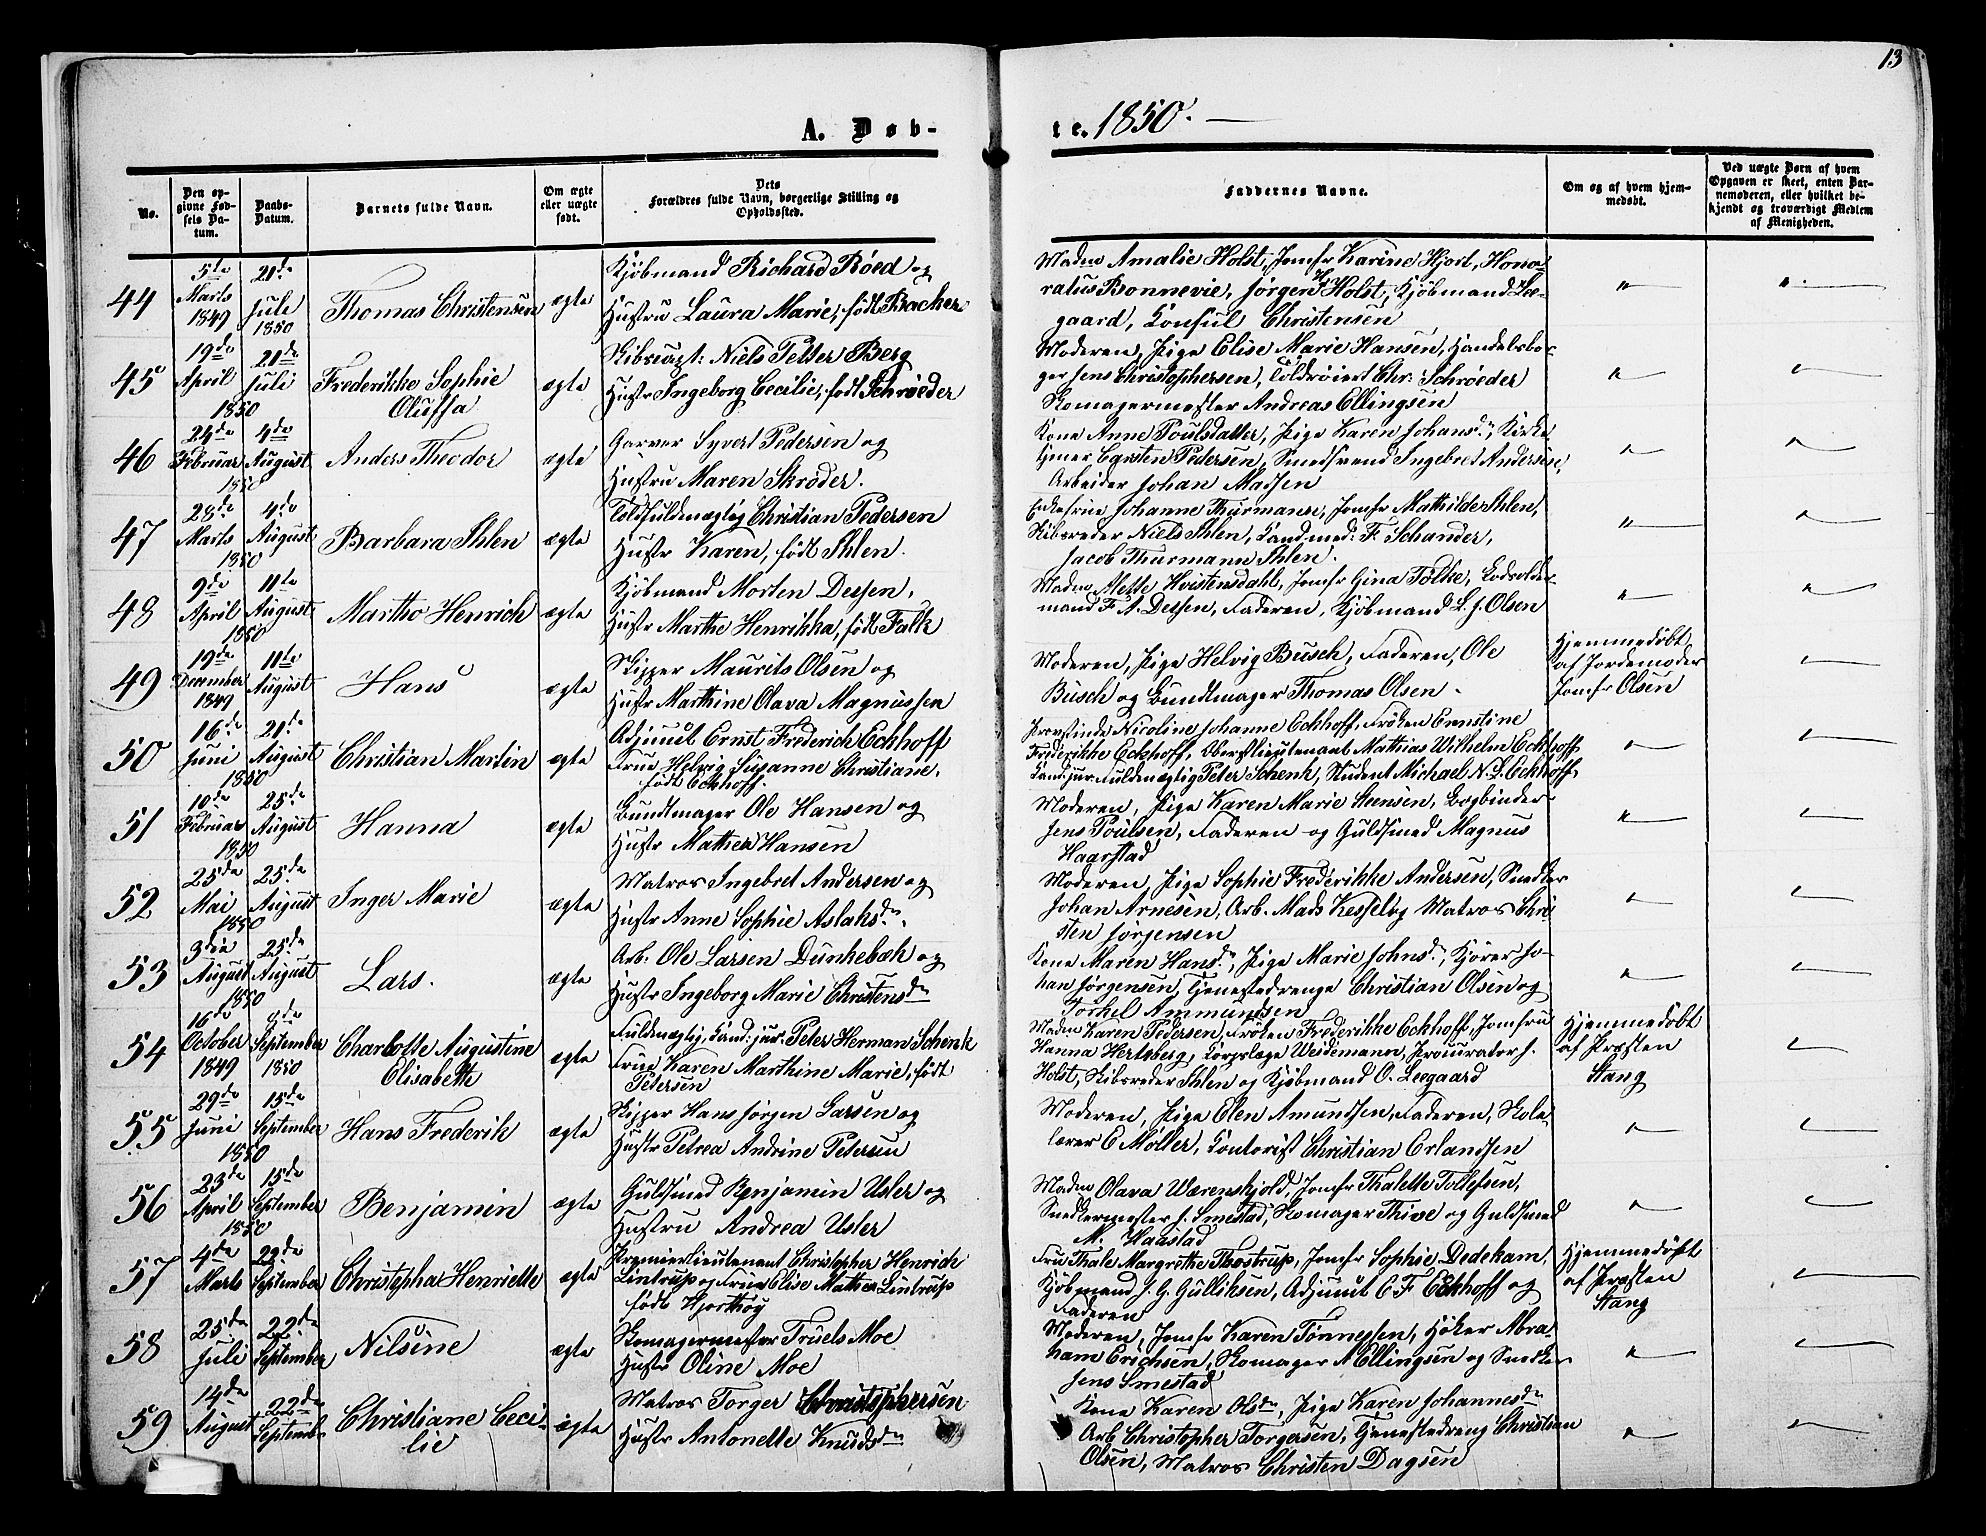 13
A. Døb-
te. 1850.
No.
Den op-
givne Fød-
sels Da-
tum.
Daabs-
Datum.
Barnets fulde Navn.
Om ægte
eller uægte
født.
Dets
Forældres fulde Navn, borgerlige Stilling og
Opholdssted.
Faddernes Navne.
Om og af hvem hjem-
medøbt.
Ved uægte Børn af hvem
Opgaven er skeet, enten Bar-
nemoderen, eller hvilket be-
kjendt og troværdigt Medlem
af Menigheden.
44
5te
Marts
1849
21de
Juli
1850
Thomas Christensen
ægte
Kjøbmand Richard Röed og
Hustru Laura Marie, født Backer
Madm Amalie Holst, Jomfr Karine Hjort, Hono-
ratus Bonnevie, Jørgen H Holst, Kjøbmand Lee-
gaard, Consul Christensen
45
19de
April
1850
21de
Juli
Frederikke Sophie
Oluffa
ægte
Skibscapt: Niels Petter Berg
Hustr Ingeborg Cecilie, født Schrøeder
Moderen, Pige Elise Marie Hansen, Handelsbor-
ger Jens Christophersen, Toldroiert Chr: Schrøeder
Skomagermester Andreas Ellingsen
46
24de
Februar
1850
4de
August
Anders Theodor
ægte
Garver Syvert Pedersen og
Hustru Maren Skrøder.
Kone Anne Poulsdatter, Pige Karen Johansd., Kirke
tjener Pedersen, Smedsvend Ingebret Andersen,
Arbeider Johan Madsen
47
28de
Marts
1850
4de
August
Barbara Ihlen
ægte
Toldfuldmægtig Christian Pedersen
Hustr Karen, født Ihlen.
Enkefrue Johanne Thurmann, Jomfr Mathilde Ihlen,
Skibsreder Niels Ihlen, Cand. med: F. Schander,
Jacob Thurmann Ihlen.
48
9de
April
1850
11te
August
Martho Henrich
ægte
Kjøbmand Morten Dessen,
Hustr Marthe Henrikka, født Falk
Madm Mette Hvistendahl, Jomfr Gina Tølke, Lodsolder-
mand F. A. Dessen, Faderen, Kjøbmand L. J. Olsen
49
19de
December
1849
11te
August
Hans
ægte
Skipper Maurits Olsen og
Hustr Marthine Olava Magnussen
Moderen, Pige Helvig Busch, Faderen, Ole
Busch og Bundtmager Thomas Olsen.
Hjemmedøbt
af Jordemoder
Jomfr Olsen
50
16de
Juni
1850
21de
August
Christian Martin
ægte
Adjunct Ernst Frederich Eckhoff
Frue Helvig Susanne Christiane,
født Eckhoff.
Provstinde Nicoline Johanne Eckhoff, Frøken Ernstine
Frederikke Eckhoff, Oberstlieutenant Mathias Wilhelm Eckhoff
Cand. jur. Fuldmægtig Peter Schenk, Student Michael N. S. Eckhoff.
51
10de
Februar
1850
25de
August
Hanna
ægte
Bundtmager Ole Hansen og
Hustr Mathea Hansen
Moderen, Pige Karen Marie Steensen, Bogbinder
Jens Poulsen, Faderen og Guldsmed Magnus
Haarstad
52
25de
Mai
1850
25de
August
Inger Marie
ægte
Matros Ingebret Andersen og
Hustr Anne Sophie Aslaksdn.
Moderen, Pige Sophie Frederikke Andersen, Snedker
Johan Arnesen, Arb. Mads Kessel og Matros Chri-
sten Jørgensen
53
3die
August
1850
25de
August
Lars.
ægte
Arb. Ole Larsen Dunkebæk og
Hustr Ingeborg Marie Christensdn
Kone Maren Hansd., Pige Marie Johnsd., Kjører Jo-
han Jørgensen, Tjenestedrenge Christian Olsen og
Torkel Ammundsen
54
16de
October
1849
8de
September
1850
Charlotte Augustine
Elisabeth
ægte
Fuldmægtig, Cand: jur. Peter Herman Schenk
Frue Karen Marthine Marie, født
Petersen
Madm Karen Pedersen, Frøken Frederikke Eckhoff, Jomfru
Hanna Hertzberg, Corpslæge Weidemann, Procurator J.
Holst, Skibsreder Ihlen og Kjøbmand O. Leegaard
Hjemmedøbt
af Præsten
Stang
55
29de
Juni
1850
15de
September
Hans Frederik
ægte
Skipper Hans Jørgen Larsen og
Hustr Petrea Andrine Petersen
Moderen, Pige Elen Amundsen, Faderen, Skole-
lærer C Møller, Contorist Christian Erlandsen
56
23de
April
1850
15de
September
Benjamin
ægte
Guldsmed Benjamin Usler og
Hustru Andrea Usler
Madm Olava Wærenskjold, Jomfr Thalette Tollefsen,
Snedkermester J. Smestad, Skomager Thive og Guldsmed
M. Haastad
57
4de
Marts
22de
September
Christepha Henriette
ægte
Premierlieutenant Christopher Henrich
Lintrup og Frue Elise Mathea Lintrup
født Hjorthöy
Fru Thale Margrethe Thostrup, Jomfr Sophie Dedekam,
Kjøbmand J. G. Gulliksen, Adjunct E F Eckhoff og
Faderen
Hjemmedøbt
af Præsten
Stang
58
25de
Juli
22de
September
Nilsine
ægte
Skomagermester Truels Moe
Hustr Oline Moe
Moderen, Jomfr Karen Tønnessen, Høker Abra-
ham Erichsen, Skomager A Ellingsen og Snedker
Jens Smestad
59
14de
August
22de
Septemb.
Christiane Ceci-
lie
ægte
Matros Torger Christophersen
Hustr Antonette Knudsdn
Kone Karen Olsdn, Pige Karen Johannesdn
Arb Christopher Torgersen, Tjenestedreng Christian
Olsen, Matros Christen Dagsen